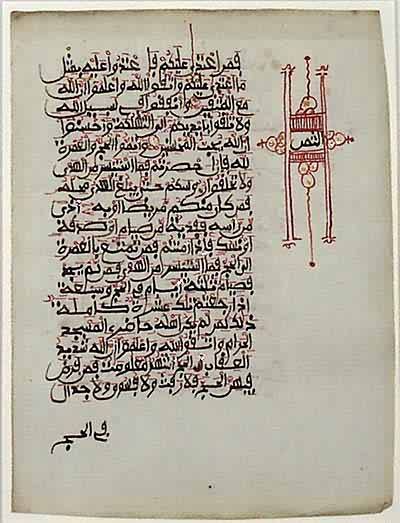 فمن اعتدى عليكم فاعتدوا عليه بمثل
ما اعتدى عليكم واتقوا الله واعلموا ان الله
مع المتقين وانفقوا في سبيل الله
ولا تلقوا بايديكم الى التهلكة واحسنوا
ان الله يحب المحسنين واتموا الحج والعمرة
لله فان احصرتم فما استيسر من الهدي
ولا تحلقوا رءوسكم حتى يبلغ الهدي محله
فمن كان منكم مريضا او به اذى
من راسه ففدية من صيام او صدقة
او نسك فاذا امنتم فمن تمتع بالعمرة
الى الحج فما استيسر من الهدي فمن لم يجد
فصيام ثلثة ايام في الحج وسبعة
اذا رجعتم تلك عشرة كاملة
ذلك لمن لم يكن اهله حاضري المسجد
الحرام واتقوا الله واعلموا ان الله شديد
العقاب الحج اشهر معلومت فمن فرض
فيهن الحج فلا رفث ولا فسوق ولا جدال
في الحج
النص